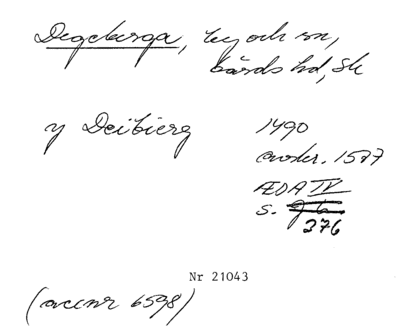 Degeberga, by och sn,
Gärds hd, Sk
y Deibierg
1490
avskr. 1577
ÆDA IV
s.
376
Nr 21043
(accnr 6598)